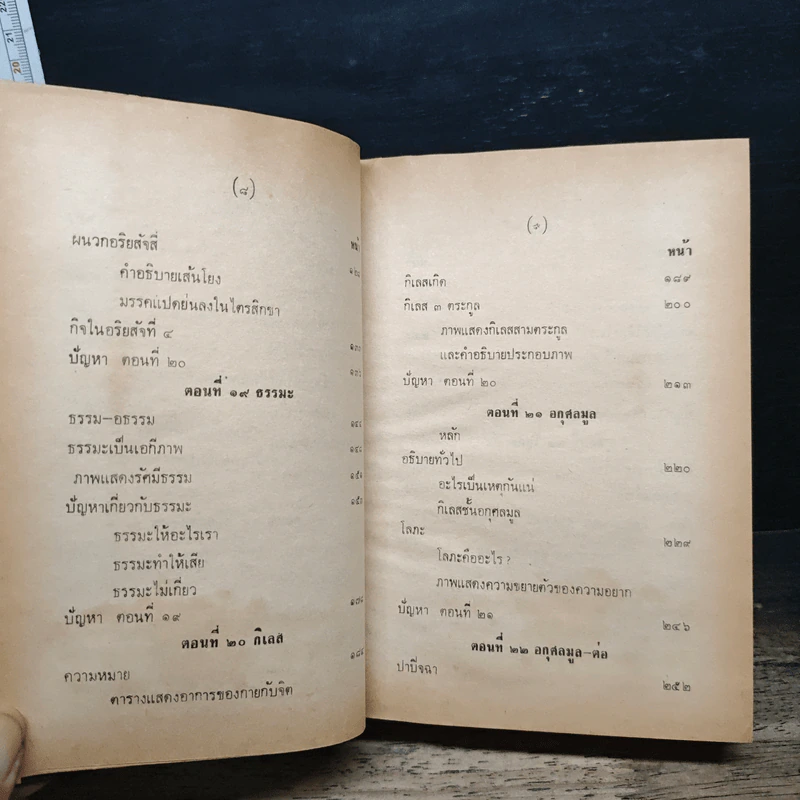 (๘)
ผนวกอริยสัจสี่
หน้า
คำอธิบายเส้นโยง
มรรคแปดย่นลงในไตรสิกขา
กิจในอริยสัจที่ ๔
ปัญหา ตอนที่ ๒๐
ตอนที่ ๑๙ ธรรมะ
ธรรม-อธรรม
ธรรมะเป็นเอกีภาพ
ภาพแสดงรัศมีธรรม
ปัญหาเกี่ยวกับธรรมะ
ธรรมะให้อะไรเรา
ธรรมะทำให้เสีย
ธรรมะไม่เกี่ยว
ปัญหา ตอนที่ ๑๙
ตอนที่ ๒๐ กิเลส
ความหมาย
ตารางแสดงอาการของกายกับจิต
หน้า
กิเลสเกิด ๑๘๙
กิเลส ๓ ตระกูล ๒๐๐
ภาพแสดงกิเลสสามตระกูล
และคำอธิบายประกอบภาพ
ปัญหา ตอนที่ ๒๐ ๒๑๓
ตอนที่ ๒๑ อกุศลมูล
หลัก
อธิบายทั่วไป ๒๒๐
อะไรเป็นเหตุกันแน่
กิเลสชั้นอกุศลมูล
โลภะ ๒๒๙
โลภะคืออะไร ?
ภาพแสดงความขยายตัวของความอยาก
ปัญหา ตอนที่ ๒๑ ๒๔๖
ตอนที่ ๒๒ อกุศลมูล-ต่อ
ปาปิจฉา ๒๕๒